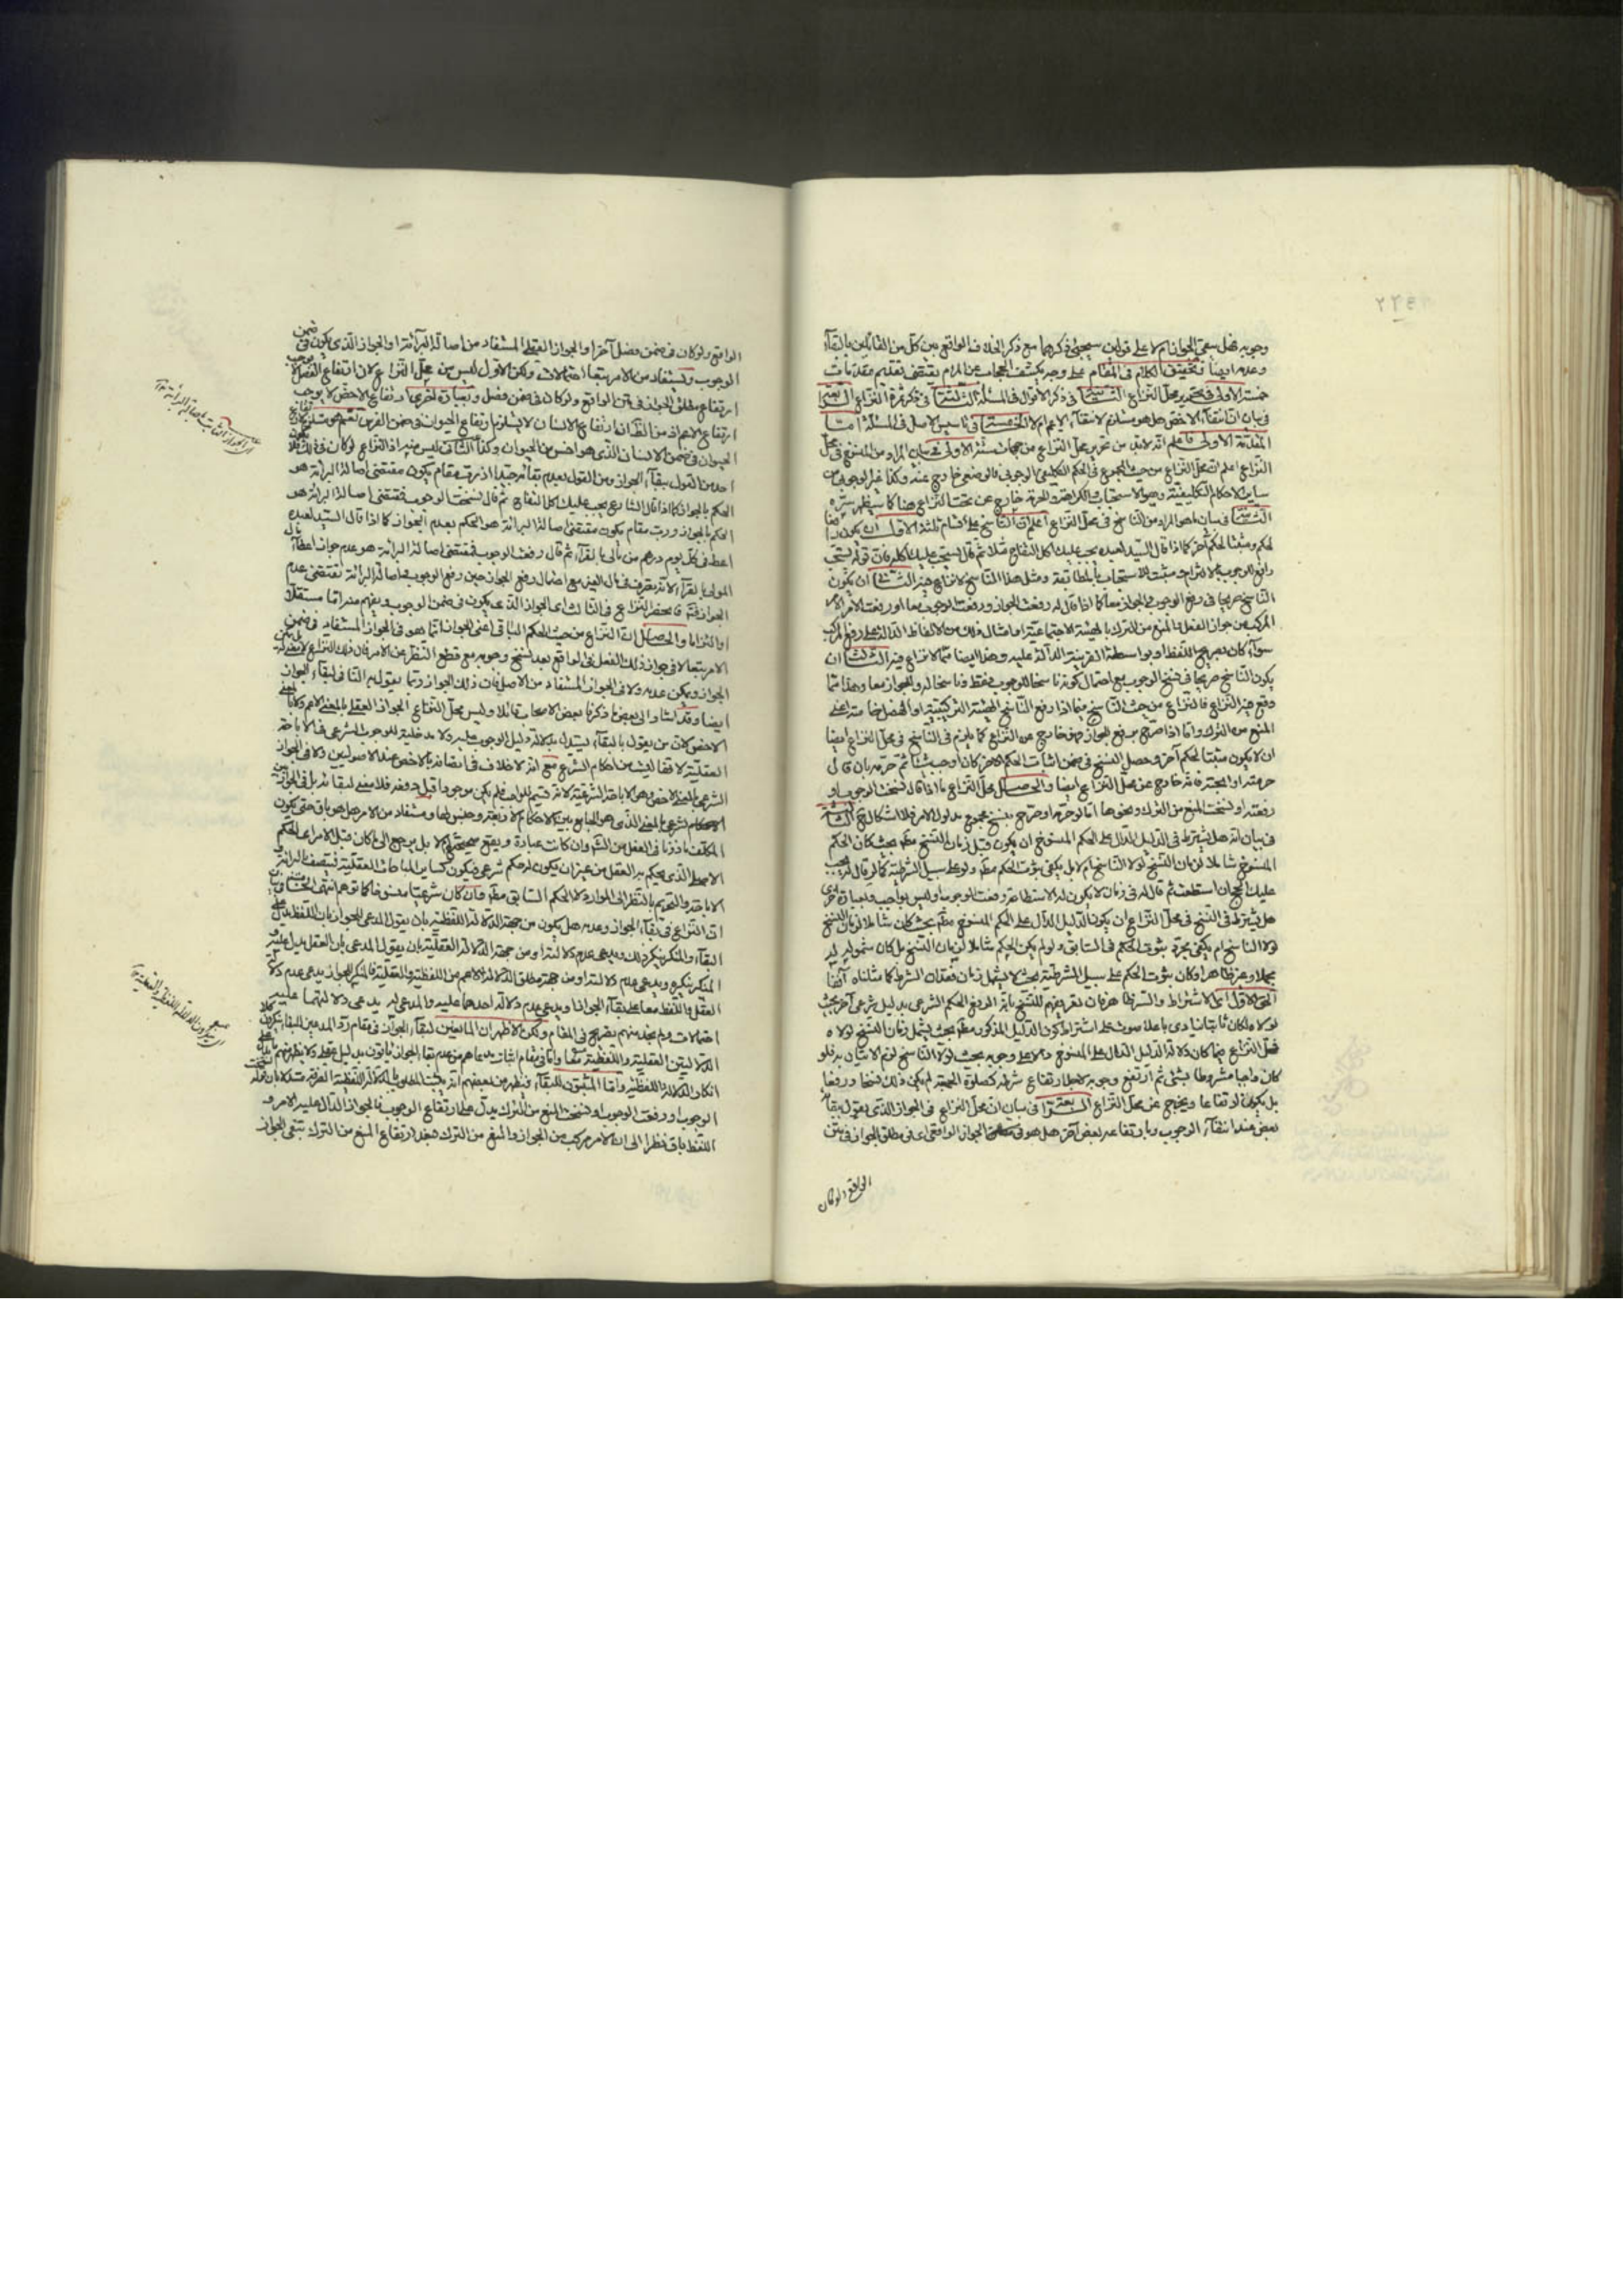 وجوبه فهل يبقى الجواز ام لا على قولين سيجئ ذكرهما مع ذكر الخلاف الواقع بين كل من القائلين بالبقاء
وعدمه ايضا وتحقيق الكلام في المقام على وجه يكشف الحجاب عن المرام يقتضى تقديم مقدمات
خمسة الاولى في تحرير محل النزاع الثانية في ذكر الاقوال في المسئلة الثالثة في ذكر ثمرة النزاع الرابعة
في بيان ان انتفاء الاخص هل هو مستلزم لانتفاء الاعم ام لا الخامسة في تاسيس الاصل في المسئلة اما
المقدمة الاولى فاعلم انه لابد من تحرير محل النزاع من جهات ستة الاولى في بيان المراد من المنسوخ في محل
النزاع اعلم ان محل النزاع من حيث المجموع في الحكم التكليفى الوجوبى فالوضعى خارج عنه وكذا غير الوجوبى من
ساير الاحكام التكليفية وهو الاستحباب والكراهة والحرمة خارج عن تحت النزاع هنا كما سيظهر سره
الثانية في بيان ما هو المراد من الناسخ في محل النزاع اعلم ان الناسخ على اقسام ثلثة الاول ان يكون رافعا
لحكم ومثبتا لحكم آخر كما اذا قال السيد لعبده يجب عليك اكل التفاح مثلا ثم قال يستحب عليك اكله فان قوله يستحب
رافع للوجوب بالالتزام ومثبت للاستحباب بالمطابقة ومثل هذا الناسخ لا نزاع فيه الثانى ان يكون
الناسخ صريحا في رفع الوجوب والجواز معا كما اذا قال له رفعت الجواز ورفعت الوجوب معا او رفعت الامر
المركب من جواز الفعل والمنع من الترك بالهيئة الاجتماعية وامثال ذلك من الالفاظ الدالة على رفع المركب
سواء كان بصريح اللفظ او بواسطة القرينة الدالة عليه وهذا ايضا مما لا نزاع فيه الثالث ان
يكون الناسخ صريحا في نسخ الوجوب مع احتمال كونه ناسخا للوجوب فقط وناسخا له وللجواز معا وهذا مما
وقع فيه النزاع فالنزاع من حيث الناسخ فيما اذا رفع الناسخ الهيئة التركيبية او الفصل خاصة اعنى
المنع من الترك واما اذا صرح برفع الجواز فهو خارج عن النزاع كما يلزم في الناسخ في محل النزاع ايضا
ان لا يكون مثبتا لحكم آخر وحصل النسخ في ضمن اثبات الحكم الآخر كان اوجب شيئا ثم حرمه بان قال
حرمته او ابحته فانه خارج عن محل النزاع ايضا والحاصل محل النزاع ما اذا قال نسخت الوجوب او
رفعته او نسخت المنع من الترك ونحوها اما لو حرمه او صرح بنسخ مجموع مدلول الامر فلا اشكال فيه الثالثة
في بيان انه هل يشترط في الدليل الدال على الحكم المنسوخ ان يكون قبل زمان النسخ مطلقا بحيث كان الحكم
المنسوخ شاملا لزمان النسخ لولا الناسخ ام لا بل يكفى ثبوت الحكم مطلقا ولو على سبيل الشرطية كما لو قال له يجب
عليك الحج ان استطعت ثم قال له في زمان لا يكون له الاستطاعة رفعت الوجوب او ليس بواجب وبعبارة اخرى
هل يشترط في النسخ في محل النزاع ان يكون الدليل الدال على الحكم المنسوخ مطلقا بحيث كان شاملا لزمان النسخ
لولا الناسخ ام يكفى مجرد ثبوت الحكم في السابق ولو لم يكن الحكم شاملا لزمان النسخ بل كان شموله له
مجملا وغير ظاهر او كان ثبوت الحكم على سبيل الشرطية بحيث لا يشمل زمان فقدان الشرط كما مثلناه آنفا
الحق الاول اى الاشتراط والسر ظاهر فان تعريفهم للنسخ بانه الرفع الحكم الشرعى بدليل شرعى آخر بحيث
لولاه لكان ثابتا ينادى باعلا صوت على اشتراط كون الدليل المذكور مطلقا بحيث يشمل زمان النسخ لولاه
فمحل النزاع فيما كان دلالة الدليل الدال على المنسوخ دالا على وجوبه بحيث لولا الناسخ لزم الاتيان به فلو
كان واجبا مشروطا بشئ ثم ارتفع وجوبه لاجل ارتفاع شرطه كصلوة الجمعة لم يكن ذلك نسخا ورفعا
بل يكون ارتفاعا ويخرج عن محل النزاع الرابعة في بيان ان محل النزاع في الجواز الذى يقول ببقائه
بعض عند انتفاء الوجوب وبارتفاعه بعض آخر هل هو في الجواز الواقعى اى في مطلق الجواز في متن
الواقع ولو كان
الواقع ولو كان في ضمن فصل آخر او الجواز العقلى المستفاد من اصالة البرائة او الجواز الذى يكون في ضمن
الوجوب ويستفاد من الامر تبعا احتمالات ولكن الاول ليس من محل النزاع لان ارتفاع الفصل لا يوجب
ارتفاع مطلق الجواز في متن الواقع ولو كان في ضمن فصل وبعبارة اخرى ارتفاع الاخص لا يوجب
ارتفاع الاعم اذ من الظ ان ارتفاع الانسان لا يستلزم ارتفاع الحيوان في ضمن الفرس نعم هو مستلزم لارتفاع
الحيوان في ضمن الانسان الذى هو اخص من الحيوان وكذا الثانى ليس منه اذ النزاع لو كان في ذلك فلا
احد من القول ببقاء الجواز ومن القول بعدم بقائه جيدا اذ رب مقام يكون مقتضى اصالة البرائة هو
الحكم بالجواز كما اذا قال الشارع يجب عليك اكل التفاح ثم قال نسخت الوجوب فمقتضى اصالة البرائة هو
الحكم بالجواز ورب مقام يكون مقتضى اصالة البرائة هو الحكم بعدم الجواز كما اذا قال السيد لعبده
اعط في كل يوم درهم من مالى بالفقراء ثم قال رفعت الوجوب فمقتضى اصالة البرائة هو عدم جواز اعطاء مال
المولى بالفقراء لانه تصرف في مال الغير مع احتمال رفع الجواز حين رفع الوجوب فاصالة البرائة تقتضى عدم
الجواز فيه فانحصر النزاع في الثالث اى الجواز الذى يكون في ضمن الوجوب ويفهم منه اما مستقلا
او التزاما والحاصل ان النزاع من حيث الحكم الباقى اعنى الجواز انما هو في الجواز المستفاد في ضمن
الامر تبعا لا في جواز ذلك الفعل في الواقع بعد نسخ وجوبه مع قطع النظر عن الامر فان ذلك النزاع لا معنى له بل يمكن
الجواز ويمكن عدمه ولا في الجواز المستفاد من الاصل فان ذلك الجواز ربما يقول به النافى لبقاء الجواز
ايضا وقد اشار الى بعض ما ذكرنا بعض الاصحاب قائلا وليس محل النزاع الجواز العقلى بالمعنى الاعم ولا بالمعنى
الاخص لان من يقول بالبقاء يستدل بدلالة دليل الوجوب عليه ولا مدخلية للوجوب الشرعى في الاباحة
العقلية لانها ليست من احكام الشرع مع انه لا خلاف في اتصافه بالاخص عند الاصوليين ولا في الجواز
الشرعى بالمعنى الاخص وهو الاباحة الشرعية لانه قسيم للواجب فلم يكن موجودا قبل رفعه فلا معنى لبقائه بل في الجواز من
الاحكام الشرعى بالمعنى الذى هو الجامع بين الاحكام الاربعة وجنس لها ومستفاد من الامر هل هو باق حتى يكون
المكلف ماذونا في الفعل من الشرع وان كانت عبادة ويقع صحيحة ام لا بل يرجع الى ما كان قبل الامر اى الحكم
الاصلى الذى يحكم به العقل من غير ان يكون له حكم شرعى فيكون كساير المباحات العقلية فيتصف بالبرائة او
الاباحة والتحريم بالنظر الى الموارد لا الحكم السابق مطلقا وان كان شرعيا منسوخا كما توهم انتهى الخامسة في بيان
ان النزاع في بقاء الجواز وعدمه هل يكون من جهة الدلالة اللفظية بان يقول المدعى للجواز بان اللفظ يدل على
البقاء والمنكر ينكر ذلك ويدعى عدم دلالته او من جهة الدلالة العقلية بان يقول المدعى بان العقل يدل عليه و
المنكر ينكره ويدعى عدم دلالته او من جهة مطلق الدلالة الاعم من اللفظية والعقلية فالمنكر للجواز يدعى عدم دلالة
العقل واللفظ معا على بقاء الجواز او يدعى عدم دلالة احدهما عليه والمدعى له يدعى دلالتهما عليه
احتمالات ولم نجد منهم تصريح في المقام ولكن الاظهر ان المانعين لبقاء الجواز في مقام رد المدعين للبقاء ينكرون كلا
الدلالتين العقلية واللفظية معا واما في مقام اثبات مدعاهم من عدم بقاء الجواز ياتون بدليل عقلى ولا يظهر منهم
انكار الدلالة اللفظية واما المثبتون للبقاء فيظهر من بعضهم انه يثبت المطلوب بالدلالة اللفظية العرفية مستدلا بان قوله نسخت
الوجوب او رفعت الوجوب او نسخت المنع من الترك يدل على ارتفاع الوجوب فالجواز الدال عليه الامر و
اللفظ باق نظرا الى ان الامر مركب من الجواز والمنع من الترك فبعد ارتفاع المنع من الترك تبقى الجواز